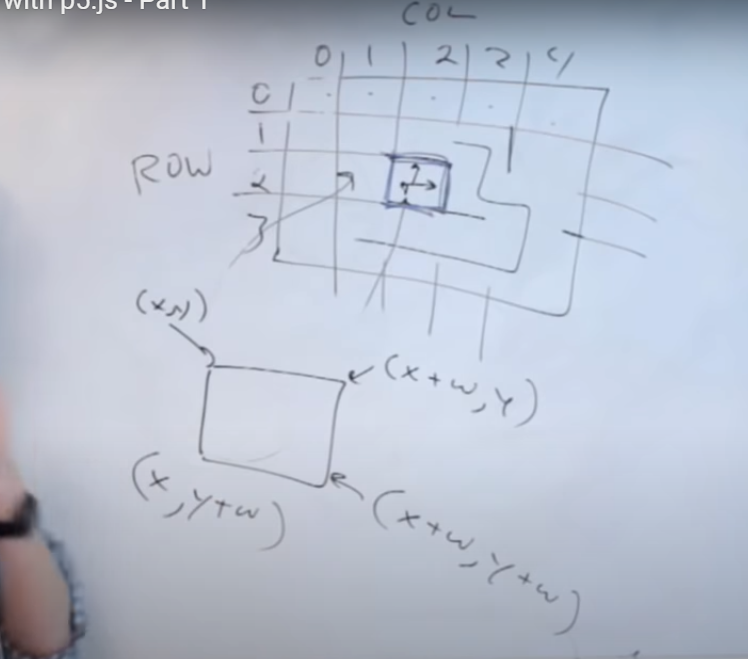 with p5.js - Part 1
COL
0 1 2 3 4
0
1
ROW
2
3
(x,y)
(x+w,y)
(x,y+w)
(x+w,y+w)